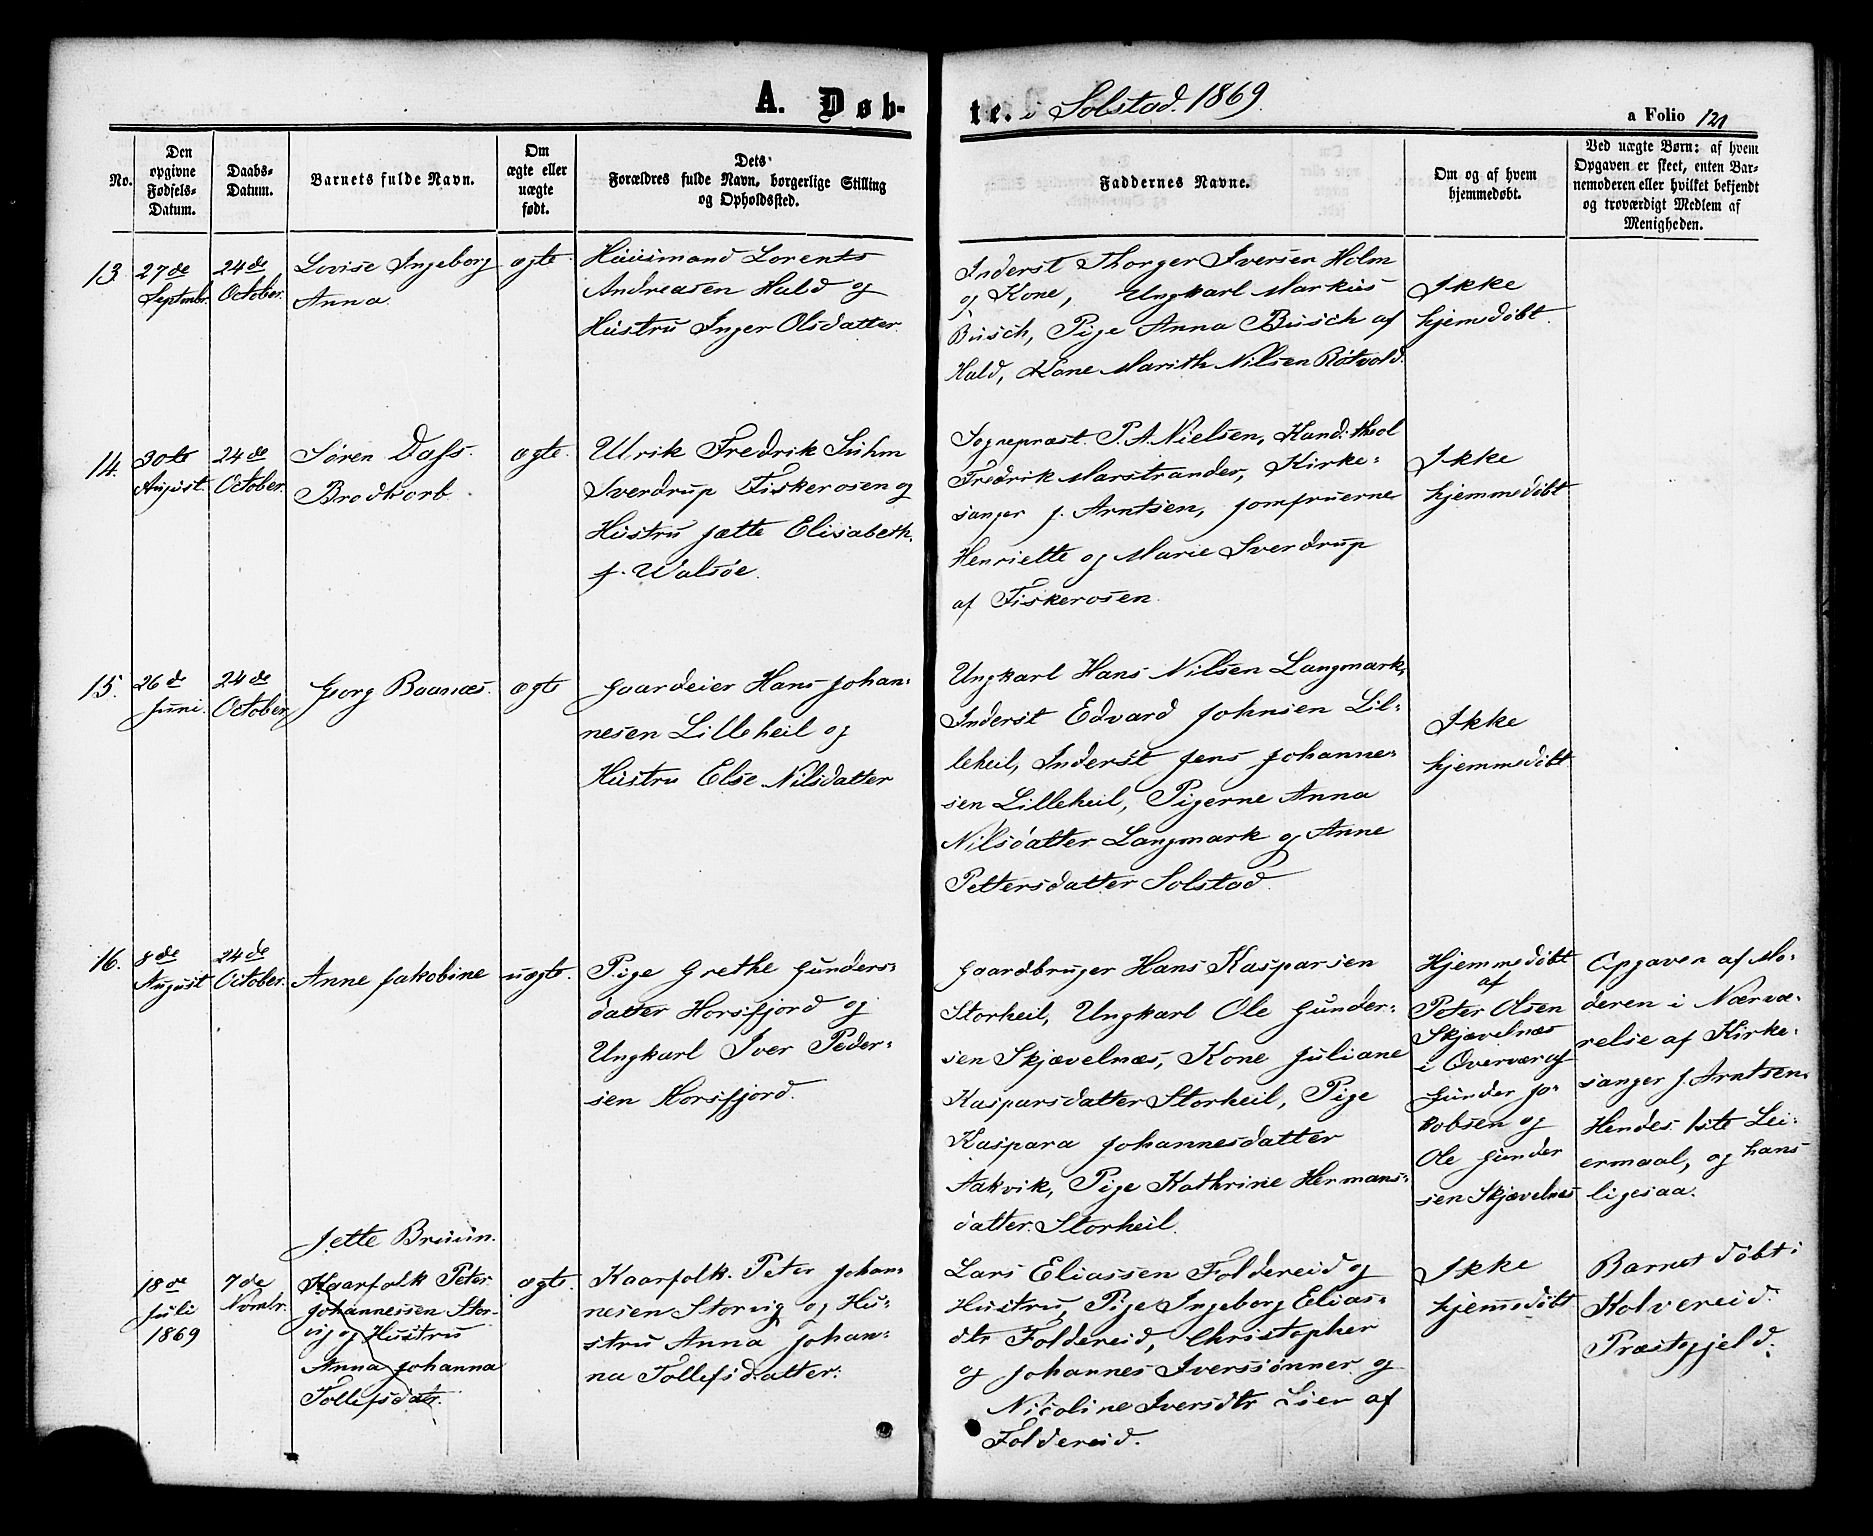 A. Døb-
te. i Solstad. 1869.
a Folio 121
No.
Den
opgivne
Fødsels-
Datum.
Daabs-
Datum.
Barnets fulde Navn.
Om
ægte eller
uægte
født.
Dets
Forældres fulde Navn, borgerlige Stilling
og Opholdssted.
Faddernes Navne.
Om og af hvem
hjemmedøbt.
Ved uægte Børn: af hvem
Opgaven er skeet, enten Bar-
nemoderen eller hvilket bekjendt
og troværdigt Medlem af
Menigheden.
13.
27de
Septmbr.
24de
October.
Lovise Ingeborg
Anna.
ægte
Huusmand Lorents
Andreasen Hald og
Hustru Inger Olsdatter.
Inderst Thorger Iversen Holm
og Kone, Ungkarl Markus
Busch, Pige Anna Busch af
Hald, Kone Marith Nilsen Røtvold.
Ikke
hjemdøbt.
14.
30te
August.
24de
October.
Søren Dass.
Brodkorb.
ægte.
Ulrik Fredrik Suhm
Sverdrup Fiskerosen og
Hustru Jætte Elisabeth.
f. Walsøe.
Sognepræst P. A. Nielsen, Kand: theol
Fredrik Marstrander, Kirke-
sanger J. Arntsen, Jomfruerne
Henriette og Marie Sverdrup
af Fiskerosen.
Ikke
hjemmedøbt
15.
26de
Juni.
24de
October.
Georg Baanæs.
ægte
Gaardeier Hans Johan-
nesen Lilleheil og
Hustru Else Nilsdatter
Ungkarl Hans Nilsen Langmark,
Inderst Edvard Johnsen Lil-
leheil, Inderst Jens Johanne-
sen Lilleheil, Pigerne Anna
Nilsdatter Langmark og Anne
Pettersdatter Solstad.
Ikke
hjemmedøbt
16.
8de
August
24de
October.
Anne Jakobine
uægte.
Pige Grethe Gunders-
datter Horsfjord og
Ungkarl Iver Peder-
sen Horsfjord.
Gaardbruger Hans Kasparsen
Storheil, Ungkarl Ole Gunder-
sen Skjævelnæs, Kone Juliane
Kasparsdatter Storheil, Pige
Kaspara Johannesdatter
Aakvik, Pige Kathrine Hermans-
datter Storheil.
Hjemmedøbt
af
Peter Olsen
Skjævelnæs
i Overvær af
Gunder Ja-
kobsen og
Ole Gunder
sen Skjævelnes
Opgaven af Mo-
deren i Nærvæ-
relse af Kirke-
sanger J. Arntsen.
Hendes 1ste Lei-
ermaal, og hans
ligesaa.
18de
Juli
1869
7de
Novmbr.
Jette Bruun.
Kaarfolk Peter
Johannessen Stor-
vig og Hustru
Anna Johanna
Tollefsdatr.
ægte.
Kaarfolk. Peter Johan-
nesen Storvig og Hu-
stru Anna Johan-
na Tollefsdatter.
Lars Eliassen Foldereid og
Hustru, Pige Ingeborg Elias-
dtr Foldereid, Christopher
og Johannes Iverssønner og
Nicoline Iversdtr Lier af
Foldereid.
Ikke
hjemmedøbt
Barnet døbt i
Kolvereid
Præstegjeld.